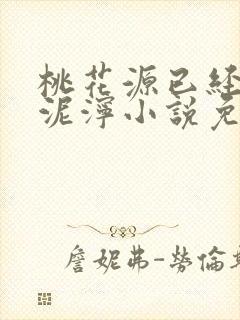 桃花源已经
泥濘小説免
詹妮弗-勞倫斯